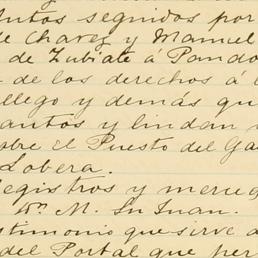 utos seguidos por
de Chavez y Manuel
de Zubiate á Pando
de los derechos á l
llego y demás qu
antos y lindan
obre el Puesto del Ga
Lobera.
egistros y merced
Dn M. Sn Juan.
stimonio que sirve d
del Portal que per